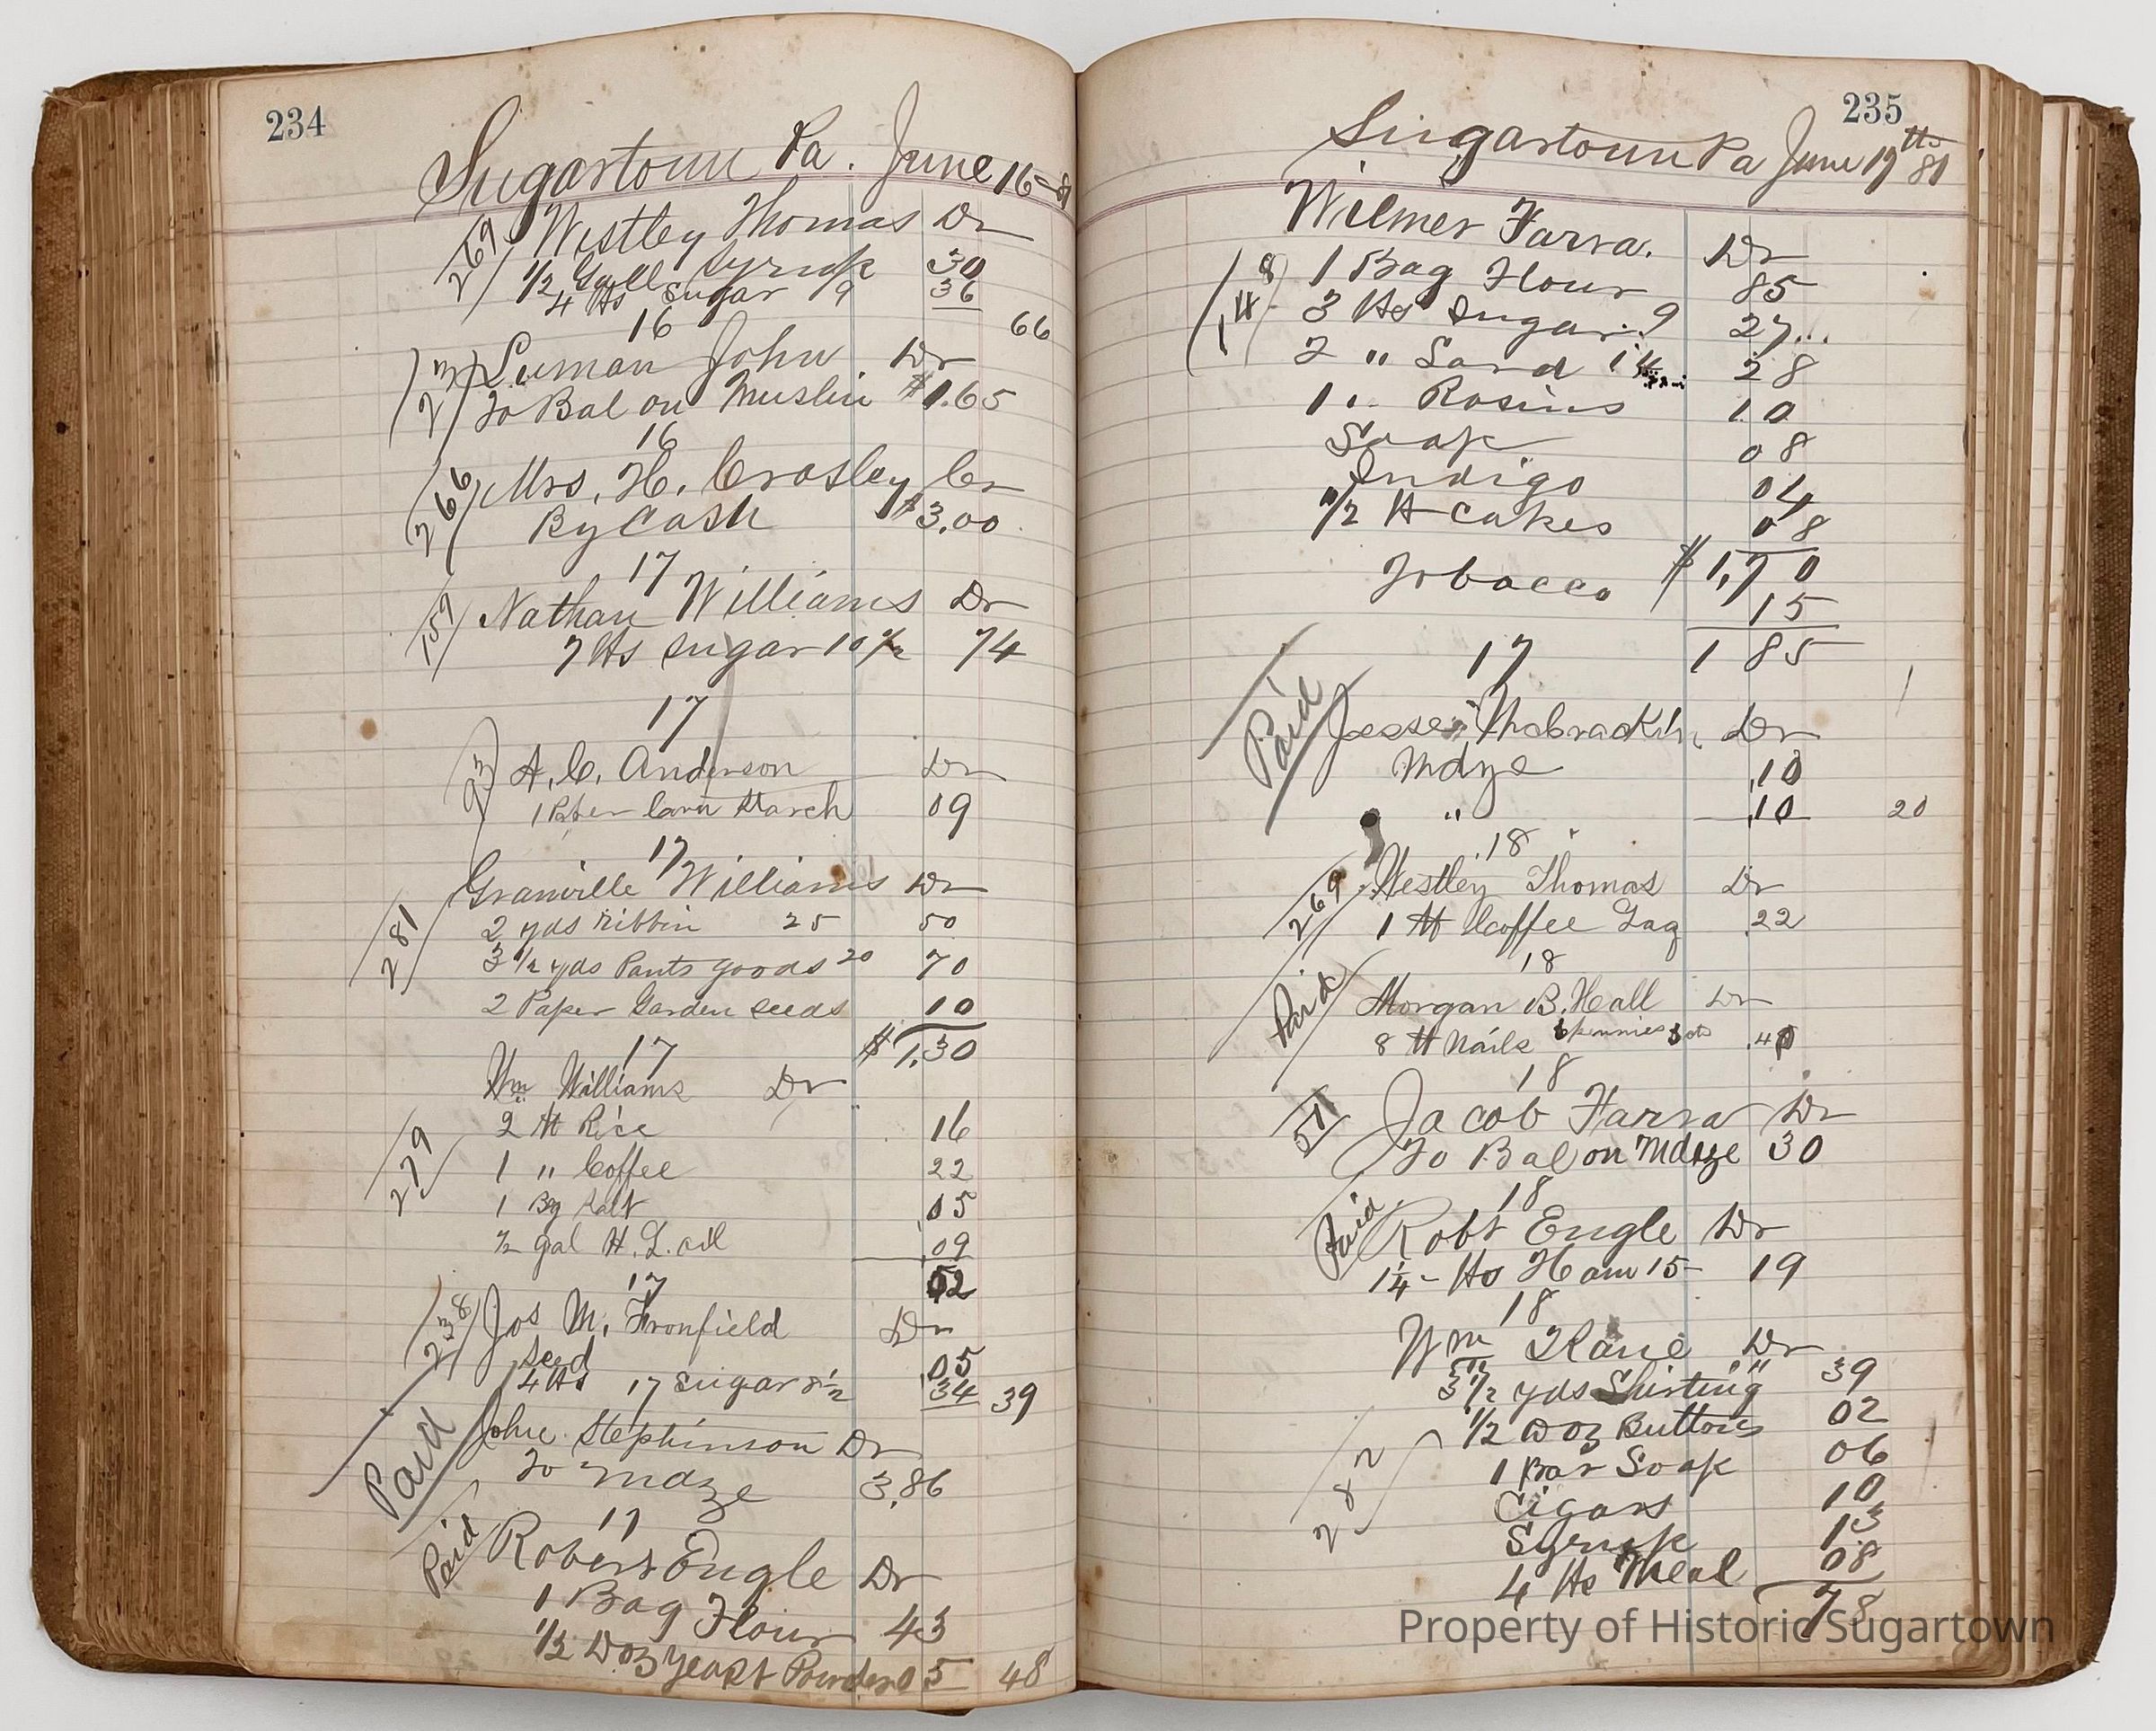 234
Sugartown Pa. June 16
269 Westley Thomas Dr
1/2 Gall Syrup 30
4 lbs Sugar 9 36
66
16
273 Luman John Dr
To Bal on Muslin $1.65
16
266 Mrs. H. Crosley Cr
By Cash $3.00
17
157 Nathan Williams Dr
7 lbs sugar 10 1/2 74
17
93 A. C. Anderson Dr
1 Paper Corn Starch 09
17
Granville Williams Dr
281
2 yds ribbin 25 50
3 1/2 yds Pants goods 20 70
2 Paper Garden seeds 10
$1.30
17
Wm Williams Dr
2 lb Rice 16
279
1 " Coffee 22
1 Bg Salt .05
1/2 gal H. L. oil .09
52
17
238 Jos M. Fronfield Dr
seed .05
4 lbs sugar 8 1/2 34 39
17
Paid John Stephinson Dr
To mdze 3.86
17
Paid Robert Engle Dr
1 Bag Flour 43
1/2 Doz yeast Powder 05 48
235
Sugartown Pa June 17th 81
Wilmer Farra. Dr
1 Bag Flour 85
3 lbs Sugar 9 27
2 " Lard 14 28
1 " Rosins 10
Soap 08
Indigo 04
1/2 lb cakes 08
$1,70
Tobacco 15
1 85
17
Paid Jesse Dr
Mdze .10
" .10 20
18
269 Westley Thomas Dr
1 lb Coffee Lag .22
18
Paid Morgan B. Hall Dr
8 lb Nails 6 pennies 5 cts .40
18
51 Jacob Farra Dr
To Bal on Mdze 30
18
Paid Robt Engle Dr
1 1/4 lbs Ham 15 19
18
Wm Kane Dr
3 1/2 yds Shirting 11 39
1/2 Doz Buttons 02
282
1 Bar Soap 06
Cigars 10
Syrup 13
4 lbs Meal 08
78
Property of Historic Sugartown